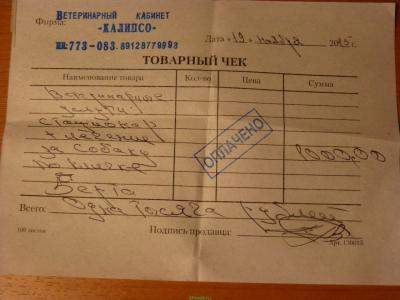 Ветеринарный кабинет
Фирма: «КАЛИПСО»
ТЕЛ: 773-083, 89128779993
Дата «19» ноября 2015г.
ТОВАРНЫЙ ЧЕК
Наименование товара Кол-во Цена Сумма
Ветеринарные
услуги:
стационар
+ лечение
за собаку 1000,00
по кличке
Берта
ОПЛАЧЕНО
Всего: Одна тысяча рублей
100 листов Подпись продавца: